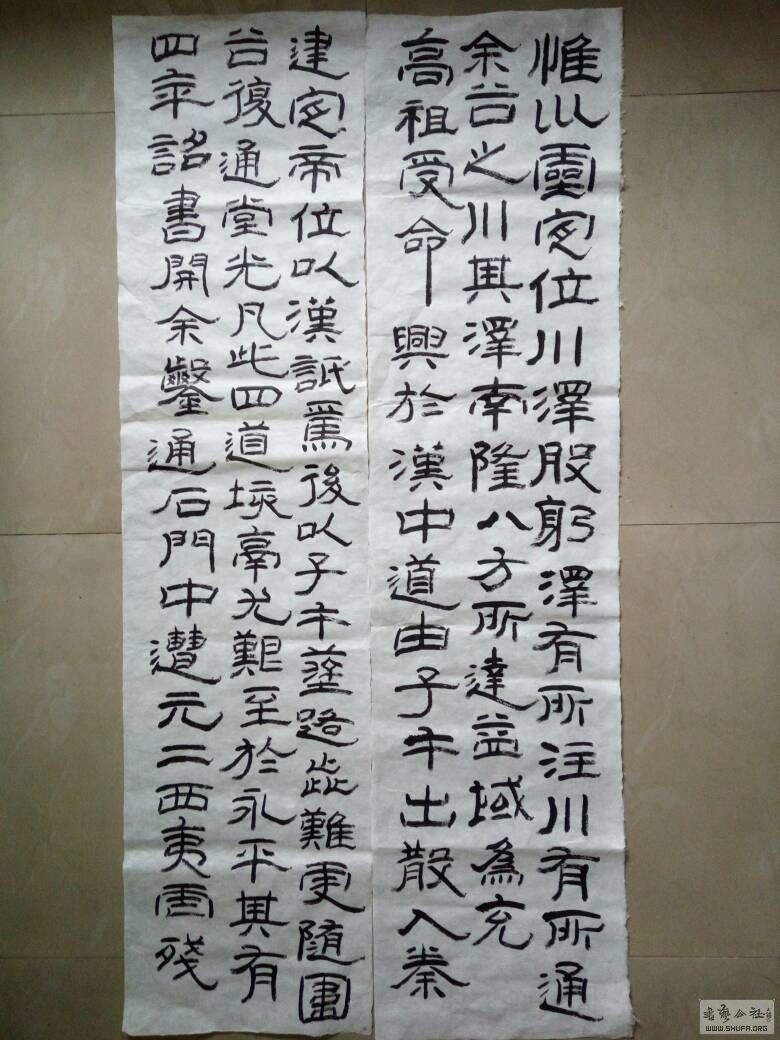 惟以靈定位川澤股躬澤有所注川有所通
余谷之川其澤南隆八方所達益域為充
高祖受命興於漢中道由子午出散入秦
建定帝位以漢詆焉後以子午塗路歮難更隨圍
谷復通堂光凡此四道垓鬲尤艱至於永平其有
四年詔書開余鑿通石門中遭元二西夷虐殘
书艺公社
WWW.SHUFA.ORG